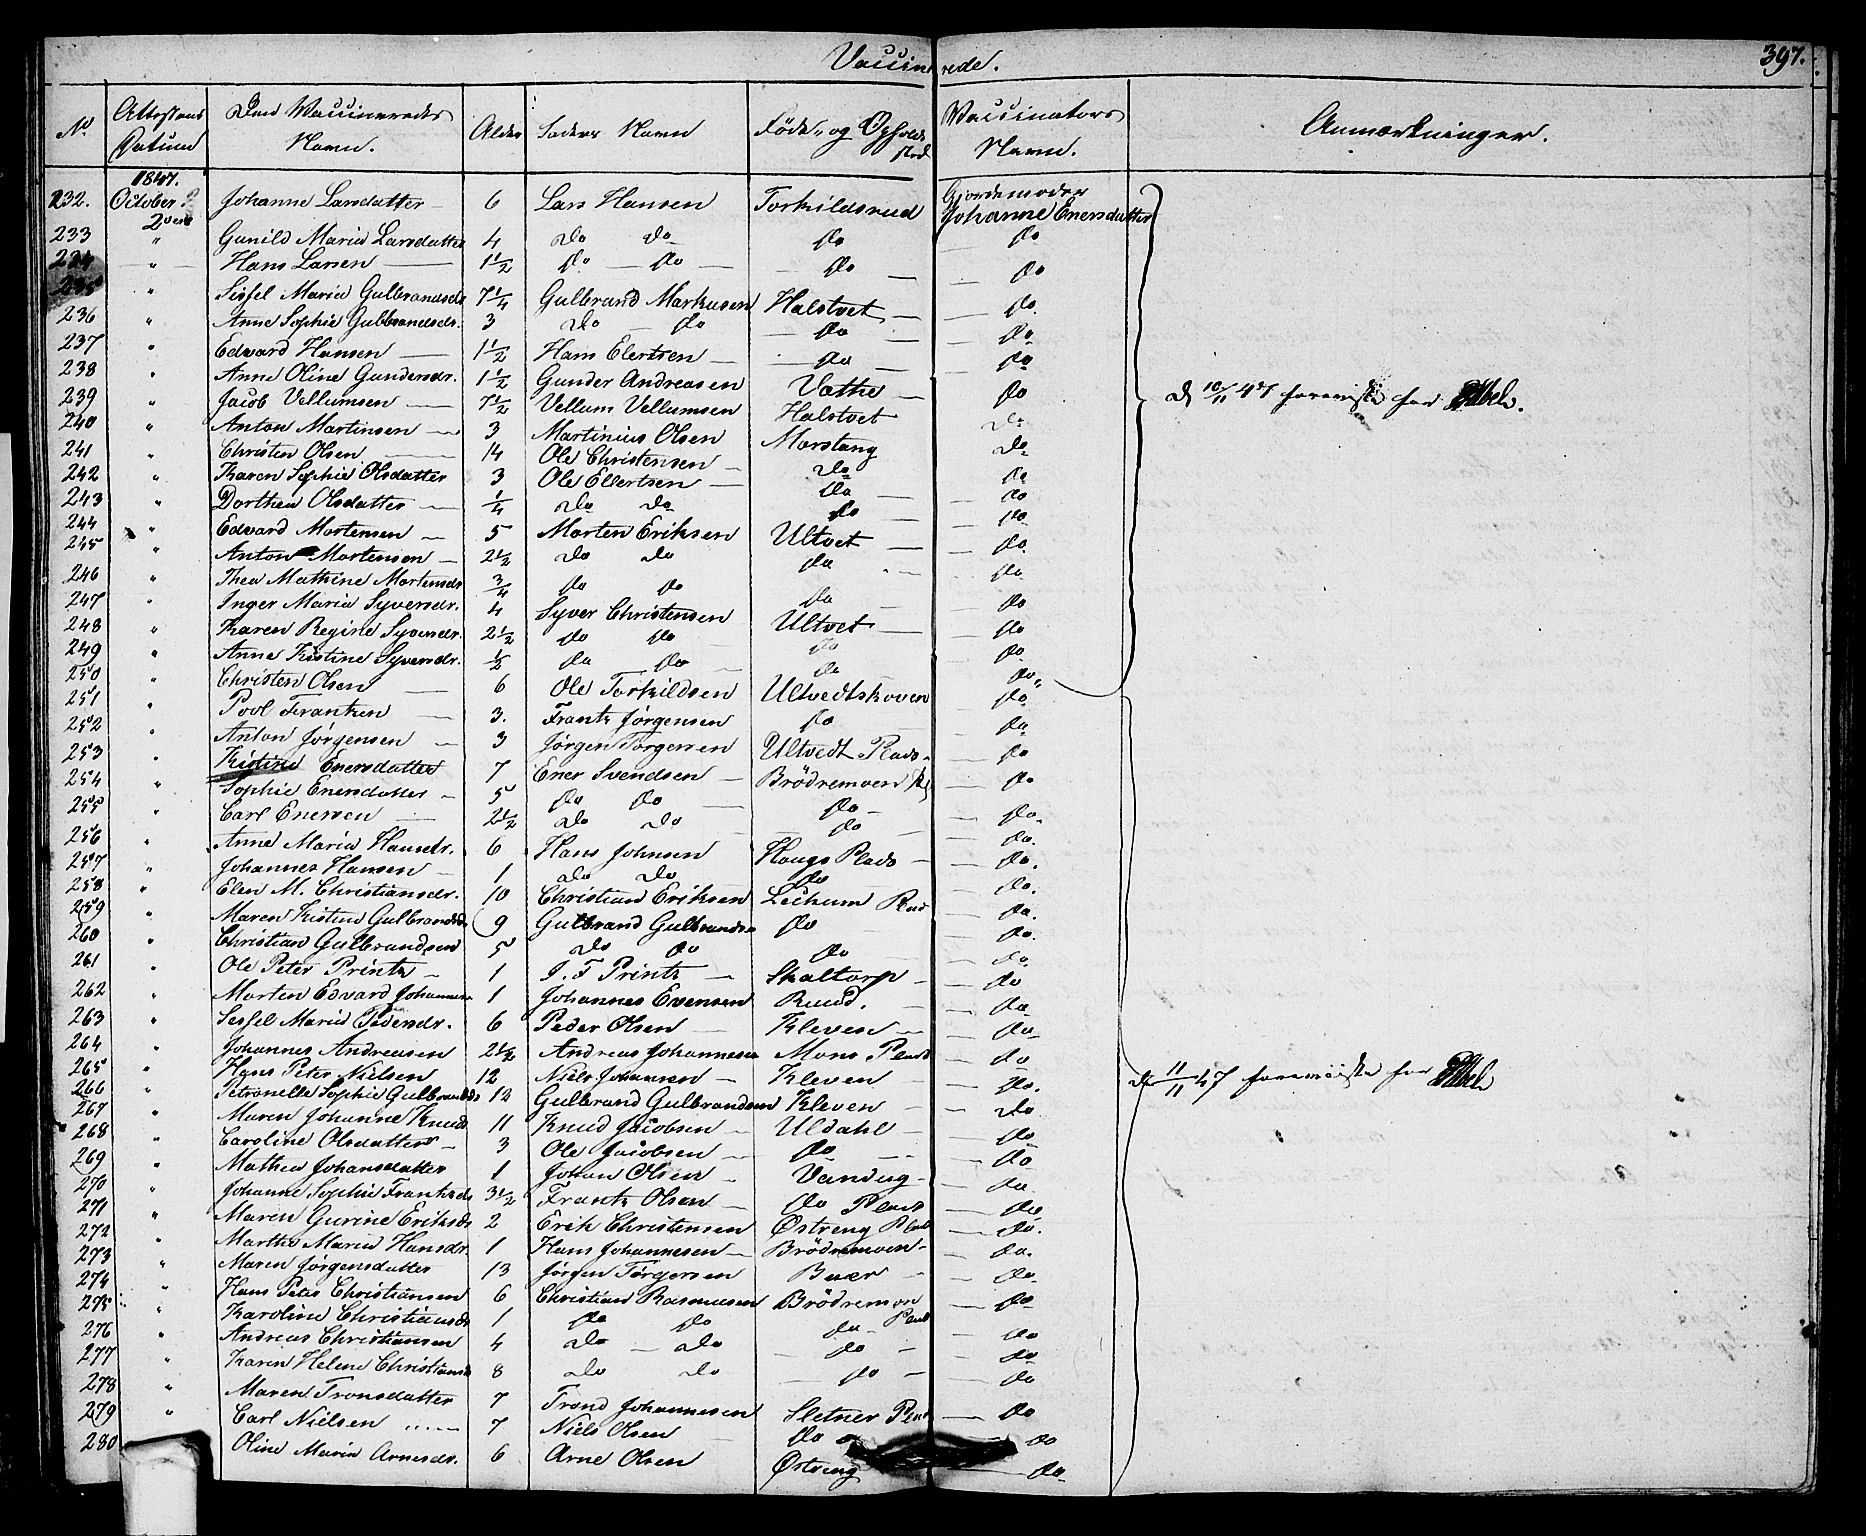 Vaccinerede.
397.
No. Attestens Datum Den Vaccineredes Navn. Alder Faders Navn Føde- og Opholdssted Vaccinators Navn. Anmærkninger.
1847.
232. October Johanne Larsdatter 6 Lars Hansen Torkildsrud Gjordemoder Johanne Enersdatter
233 " Gunild Maria Larsdatter 4 Do Do do do
234 " Hans Larsen 1 1/2 do do do do
235 " Sissel Maria Gulbrandsdr 7 1/4 Gulbrand Markusen Halstvet do
236 " Anne Sophie Gulbrandsdr. 3 Do do do do
237 " Edvard Hansen 1 1/2 Hans Elertsen do do
238 " Anne Oline Gundersdr. 1 1/2 Gunder Andreasen Vathe do
239 " Jacob Vellumsen 7 1/2 Vellum Vellumsen Halstvet do
240 " Anton Martinsen 3 Martinius Olsen Morstang do
241 " Christen Olsen 14 Ole Christensen Do do
242 " Karen Sophie Olsdatter 3 Ole Ellertsen do do
243 " Dorthea Olsdatter 1/4 Do Do do do
244 " Edvard Mortensen 5 Morten Eriksen Ultvet do
245 " Anton Mortensen 2 1/2 Do Do do do
246 " Thea Mathine Mortensdr 3/4 do do do do
247 " Inger Maria Syversdr. 4 Syver Christensen Ultvet do
248 " Karen Regine Syversdr. 2 1/2 do do do do
249 " Anne Kistine Syversdr. 1/2 do do do do
250 " Christen Olsen 6 Ole Torkildsen Ultvedtskoven do
251 " Povl Frantzen 3. Frantz Jørgensen do do
252 " Anton Jørgensen 3 Jørgen Torgersen Ultvedt Plads do
253 " Kistine Enersdatter 7 Ener Svendsen Brödremoen do
254 " Sophie Enersdatter 5 do do do do
255 " Carl Enersen 2 1/2 Do Do do do
256 " Anne Maria Hansdr. 6 Hans Johnsen Haugs Plads do
257 " Johannes Hansen 1 Do Do do do
258 " Elen M. Christiansdr. 10 Christian Eriksen Lechum Plads do
259 " Maren Kistine Gulbrandsdr 9 Gulbrand Gulbrandsen do do
260 " Christian Gulbrandsen 5 Do do do do
261 " Ole Peter Printz 1 J. F Printz Skaltorp do
262 " Morten Edvard Johannesen 1 Johannes Evensen Ruud. do
263 " Sessel Maria Pedersdr. 6 Peder Olsen Kleven do
264 " Johannes Andreasen 2 1/2 Andreas Johannesen Mons Plads do
265 " Hans Peter Nielsen 12 Niels Johansen Kleven do
266 " Petronelle Sophie Gulbrandsdr 12 Gulbrand Gulbrandsen Kleven do
267 " Maren Johanne Knuds 11 Knud Jacobsen Uldahl do
268 " Caroline Olsdatter 3 Ole Jacobsen do do
269 " Mathea Johansdatter 1 Johan Olsen Vandug do
270 " Johanne Sophie Frantzdr 3 1/2 Frantz Olsen do Plads do
271 " Maren Gurine Eriksdr 2 Erik Christensen Østreng Plads do.
272 " Marthe Maria Hansdr. 1 Hans Johannesen Brödremoen do.
273 " Maren Jørgensdatter 13 Jørgen Torgersen Buer do
274 " Hans Peter Christiansen 6 Christian Rasmusen Brödremoen Plads do
275 " Karoline Christiansdr 1 do do do do
276 " Andreas Christiansen 4 Do Do do do
277 " Karen Helene Christiansdr 8 Do Do do do
278 " Maren Tronsdatter 7 Trond Johannesen Sletner Plads do
279 " Carl Nielsen 7 Niels Olsen do do
280 " Oline Maria Arnesdr. 6 Arne Olsen Østreng do
d 10/11 47 foreviist for Abel.
d 11/11 47 foreviiste for Abel